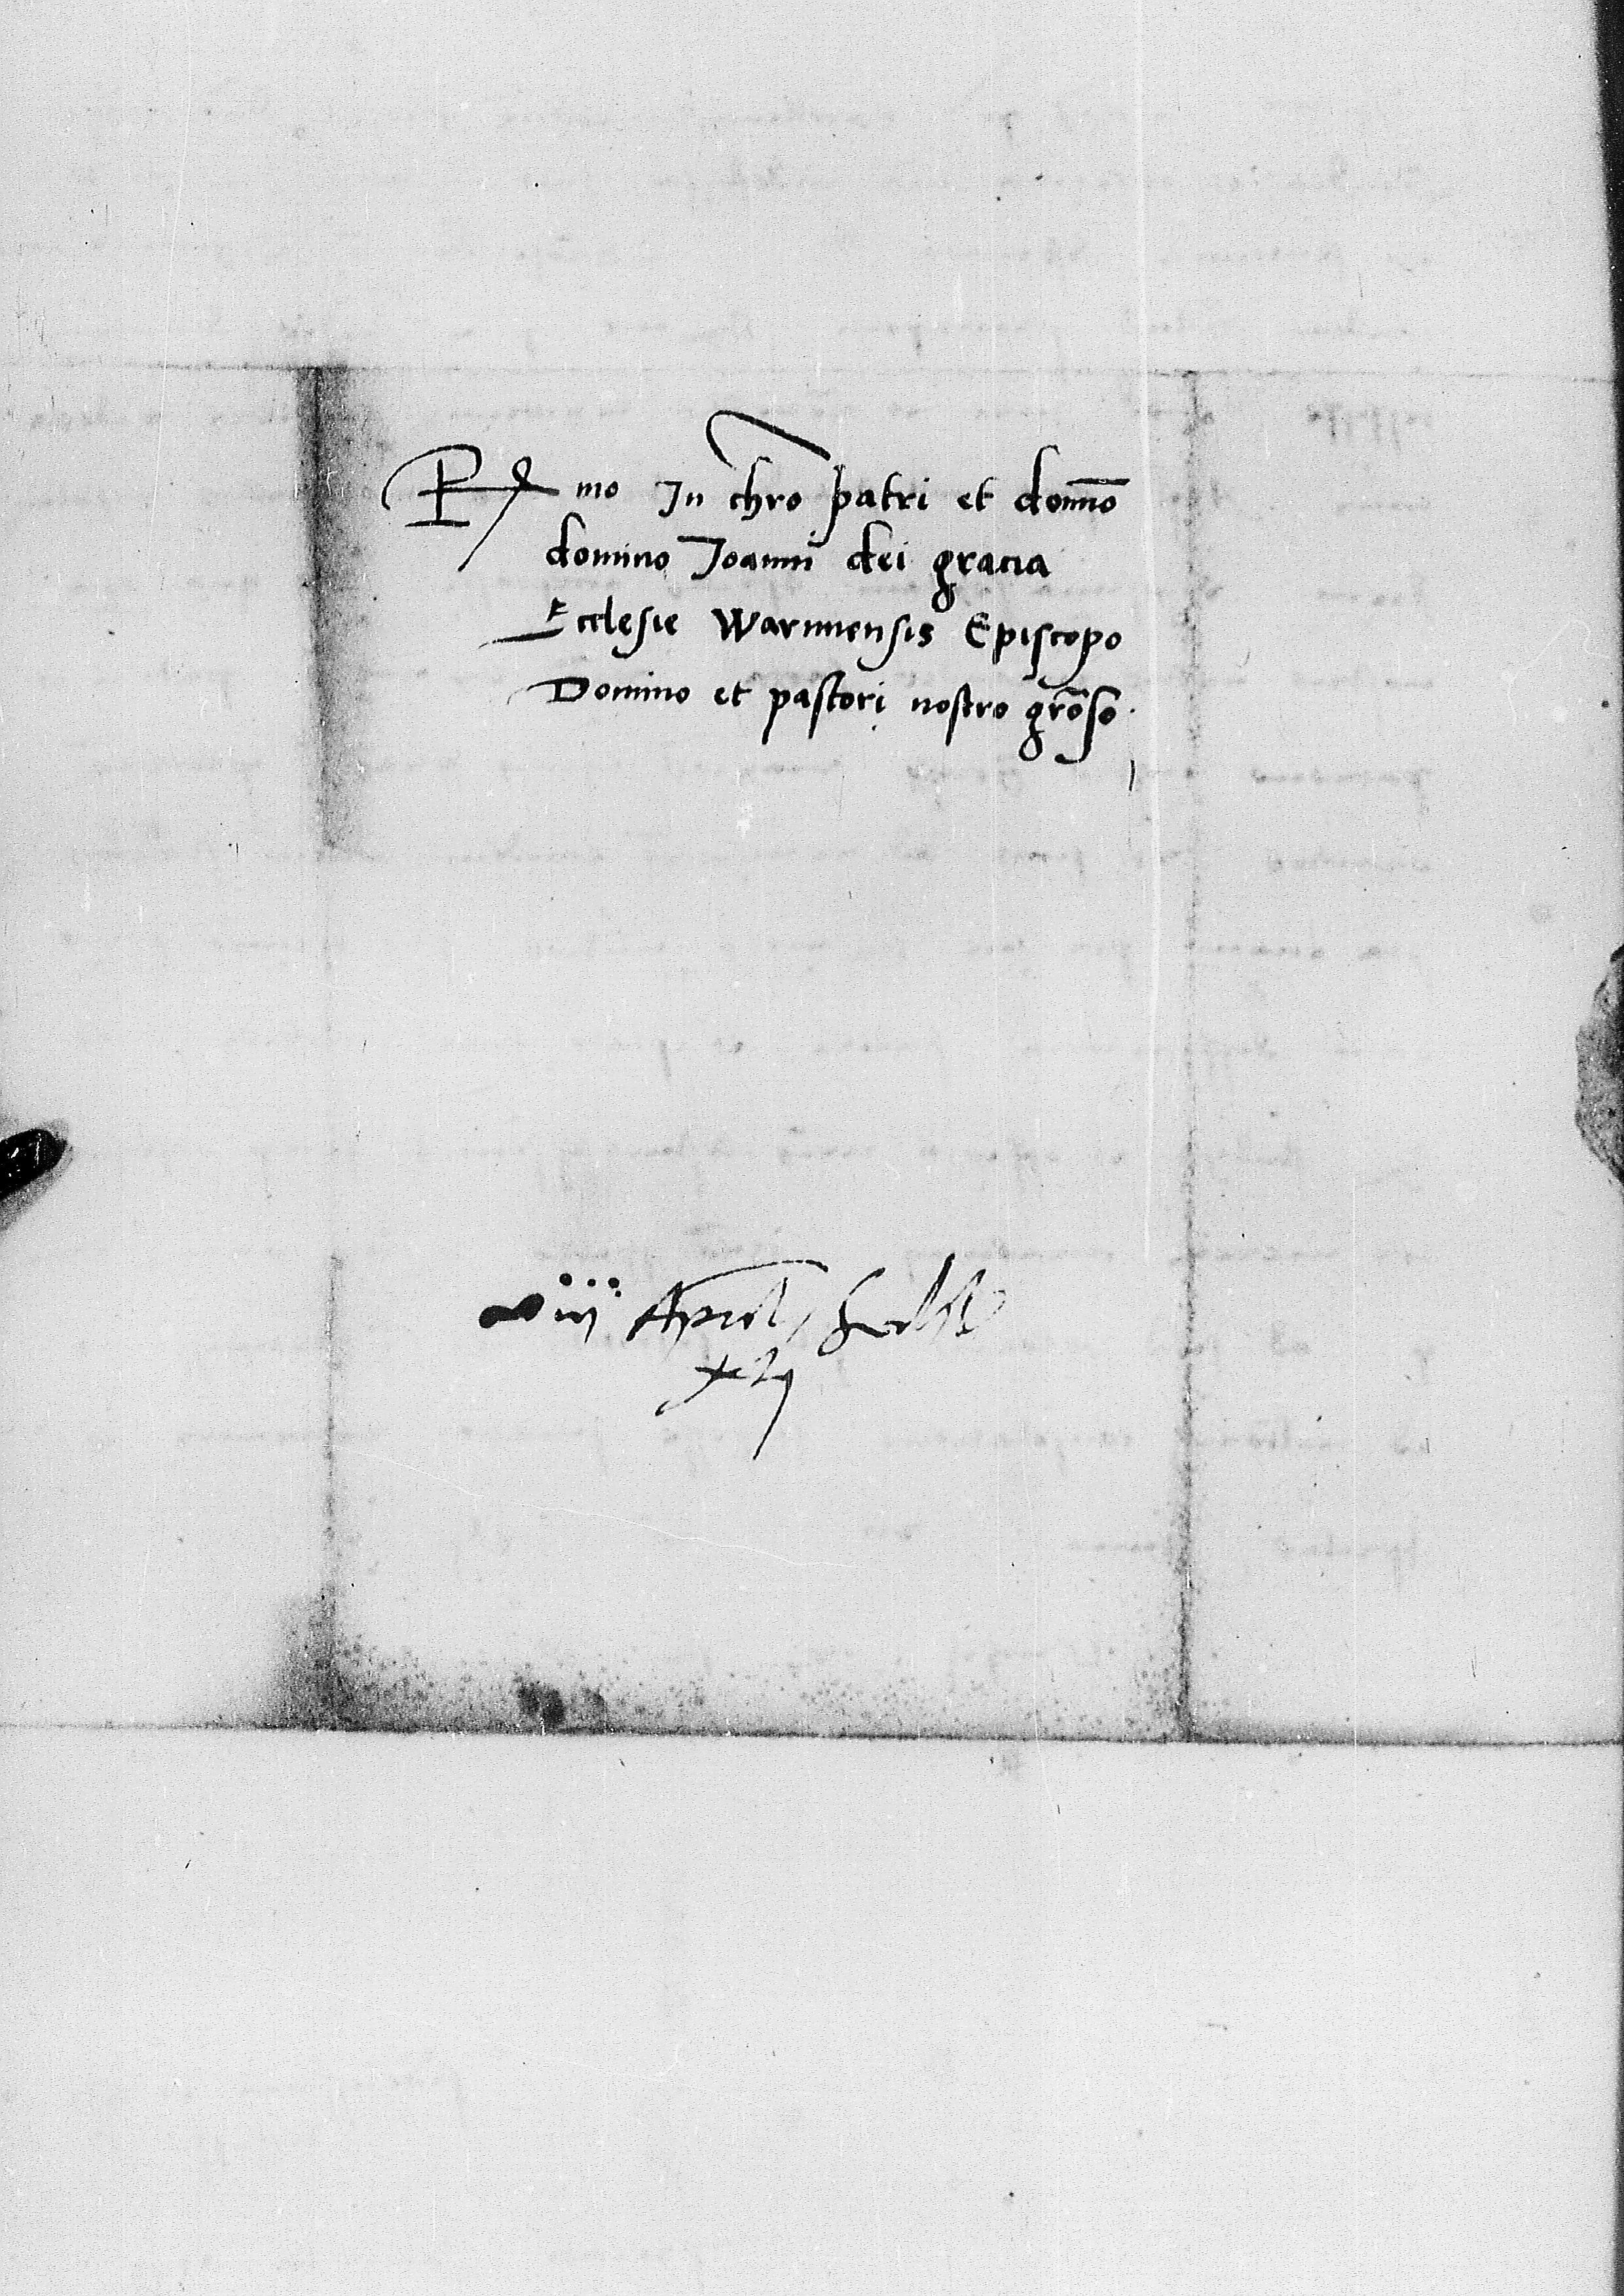 R mo In chro patri et domno
domino Joanni dei gracia
Ecclesie Warmiensis Episcopo
Domino et pastori nostro groso
viij Aprilis